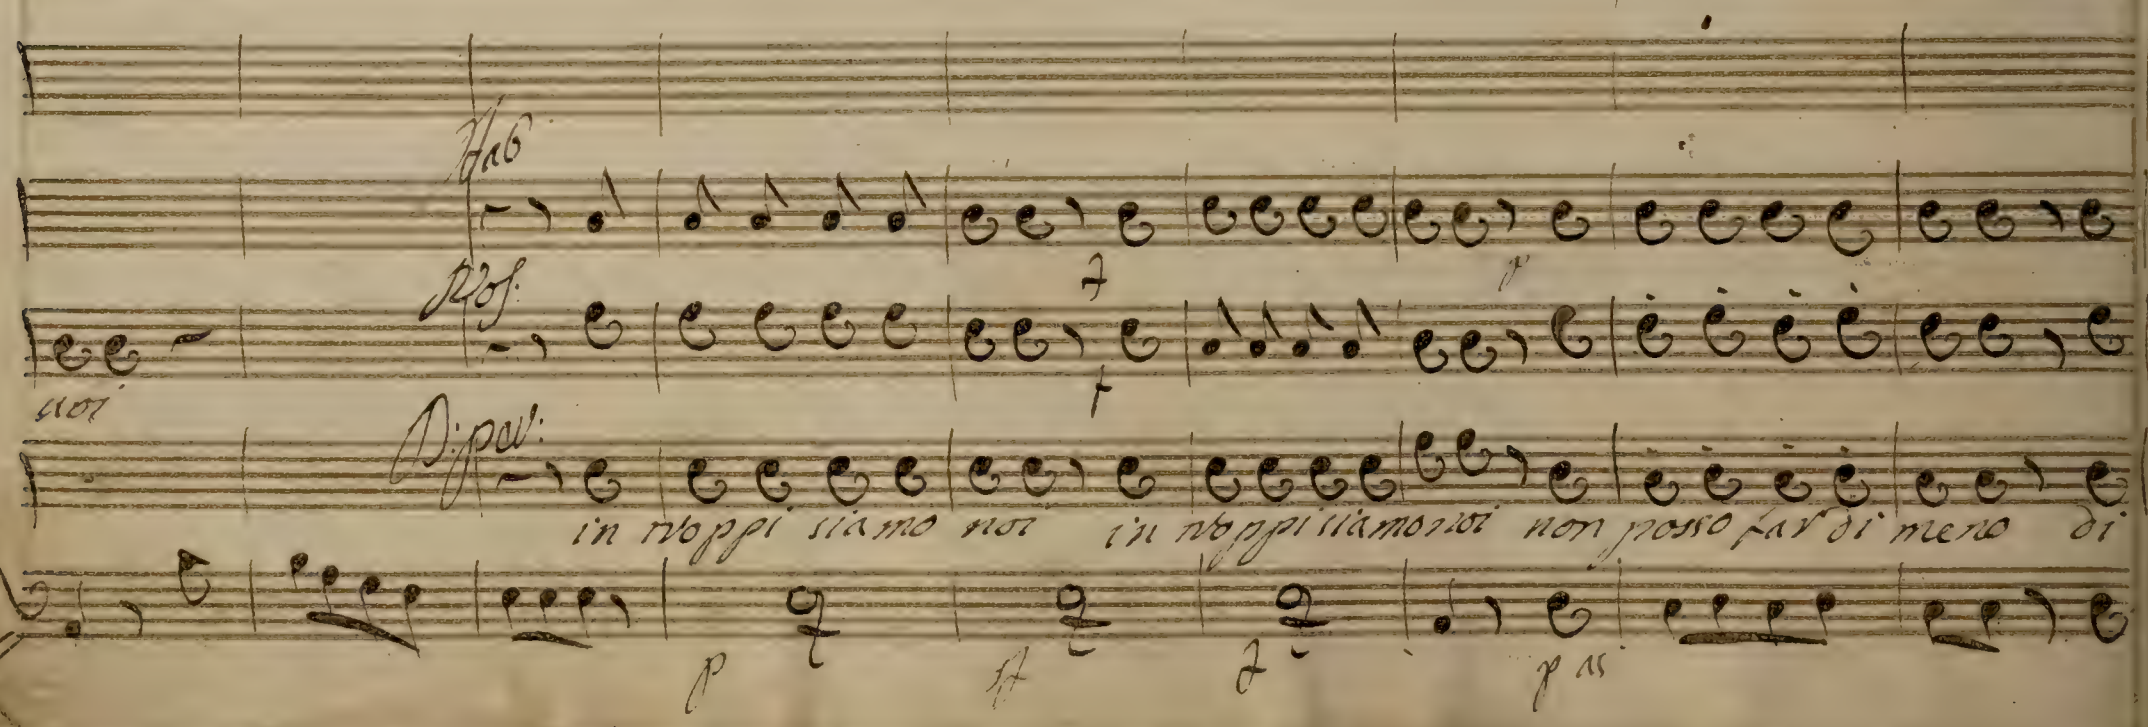 Fab
Ros:
noi
D: pa:
in troppi siamo noi in troppi siamo noi non posso far di meno di
p f p as